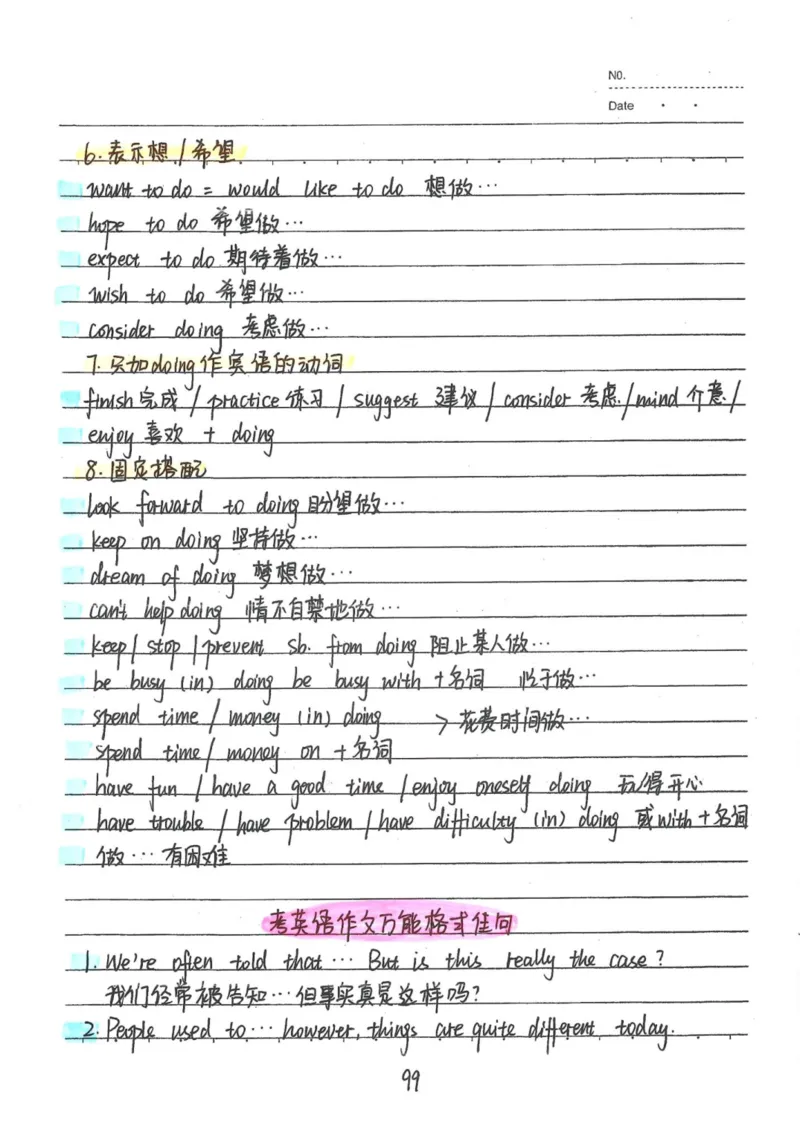 NO.
Date
6.表示想/希望
want to do = would like to do 想做…
hope to do 希望做…
expect to do 期待着做…
wish to do 希望做…
consider doing 考虑做…
7.只加doing作宾语的动词
finish完成/practice练习/suggest 建议/consider 考虑/mind 介意/
enjoy 喜欢 + doing
8.固定搭配
look forward to doing盼望做…
keep on doing 坚持做…
dream of doing 梦想做…
can't help doing 情不自禁地做…
keep/stop/prevent sb. from doing 阻止某人做…
be busy (in) doing be busy with +名词 忙于做…
spend time/money (in) doing > 花费时间做…
spend time/money on +名词
have fun/have a good time/enjoy oneself doing 玩得开心
have trouble/have problem/have difficulty (in) doing 或with+名词
做…有困难
考英语作文万能格式佳句
1.We're often told that… But is this really the case?
我们经常被告知…但事实真是这样吗?
2.People used to… however, things are quite different today.
99